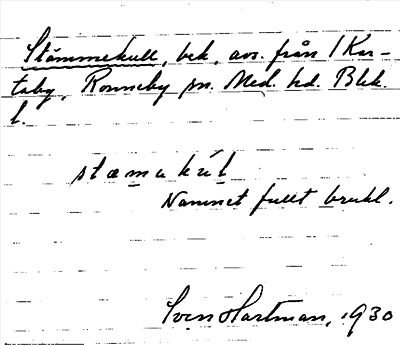 Stämmekull, bek, avs. från 1 Kar-
taby, Ronneby sn. Med. hd. Blek.
l.
stæmekúl
Namnet fullt brukl.
Sven Hartman, 1930